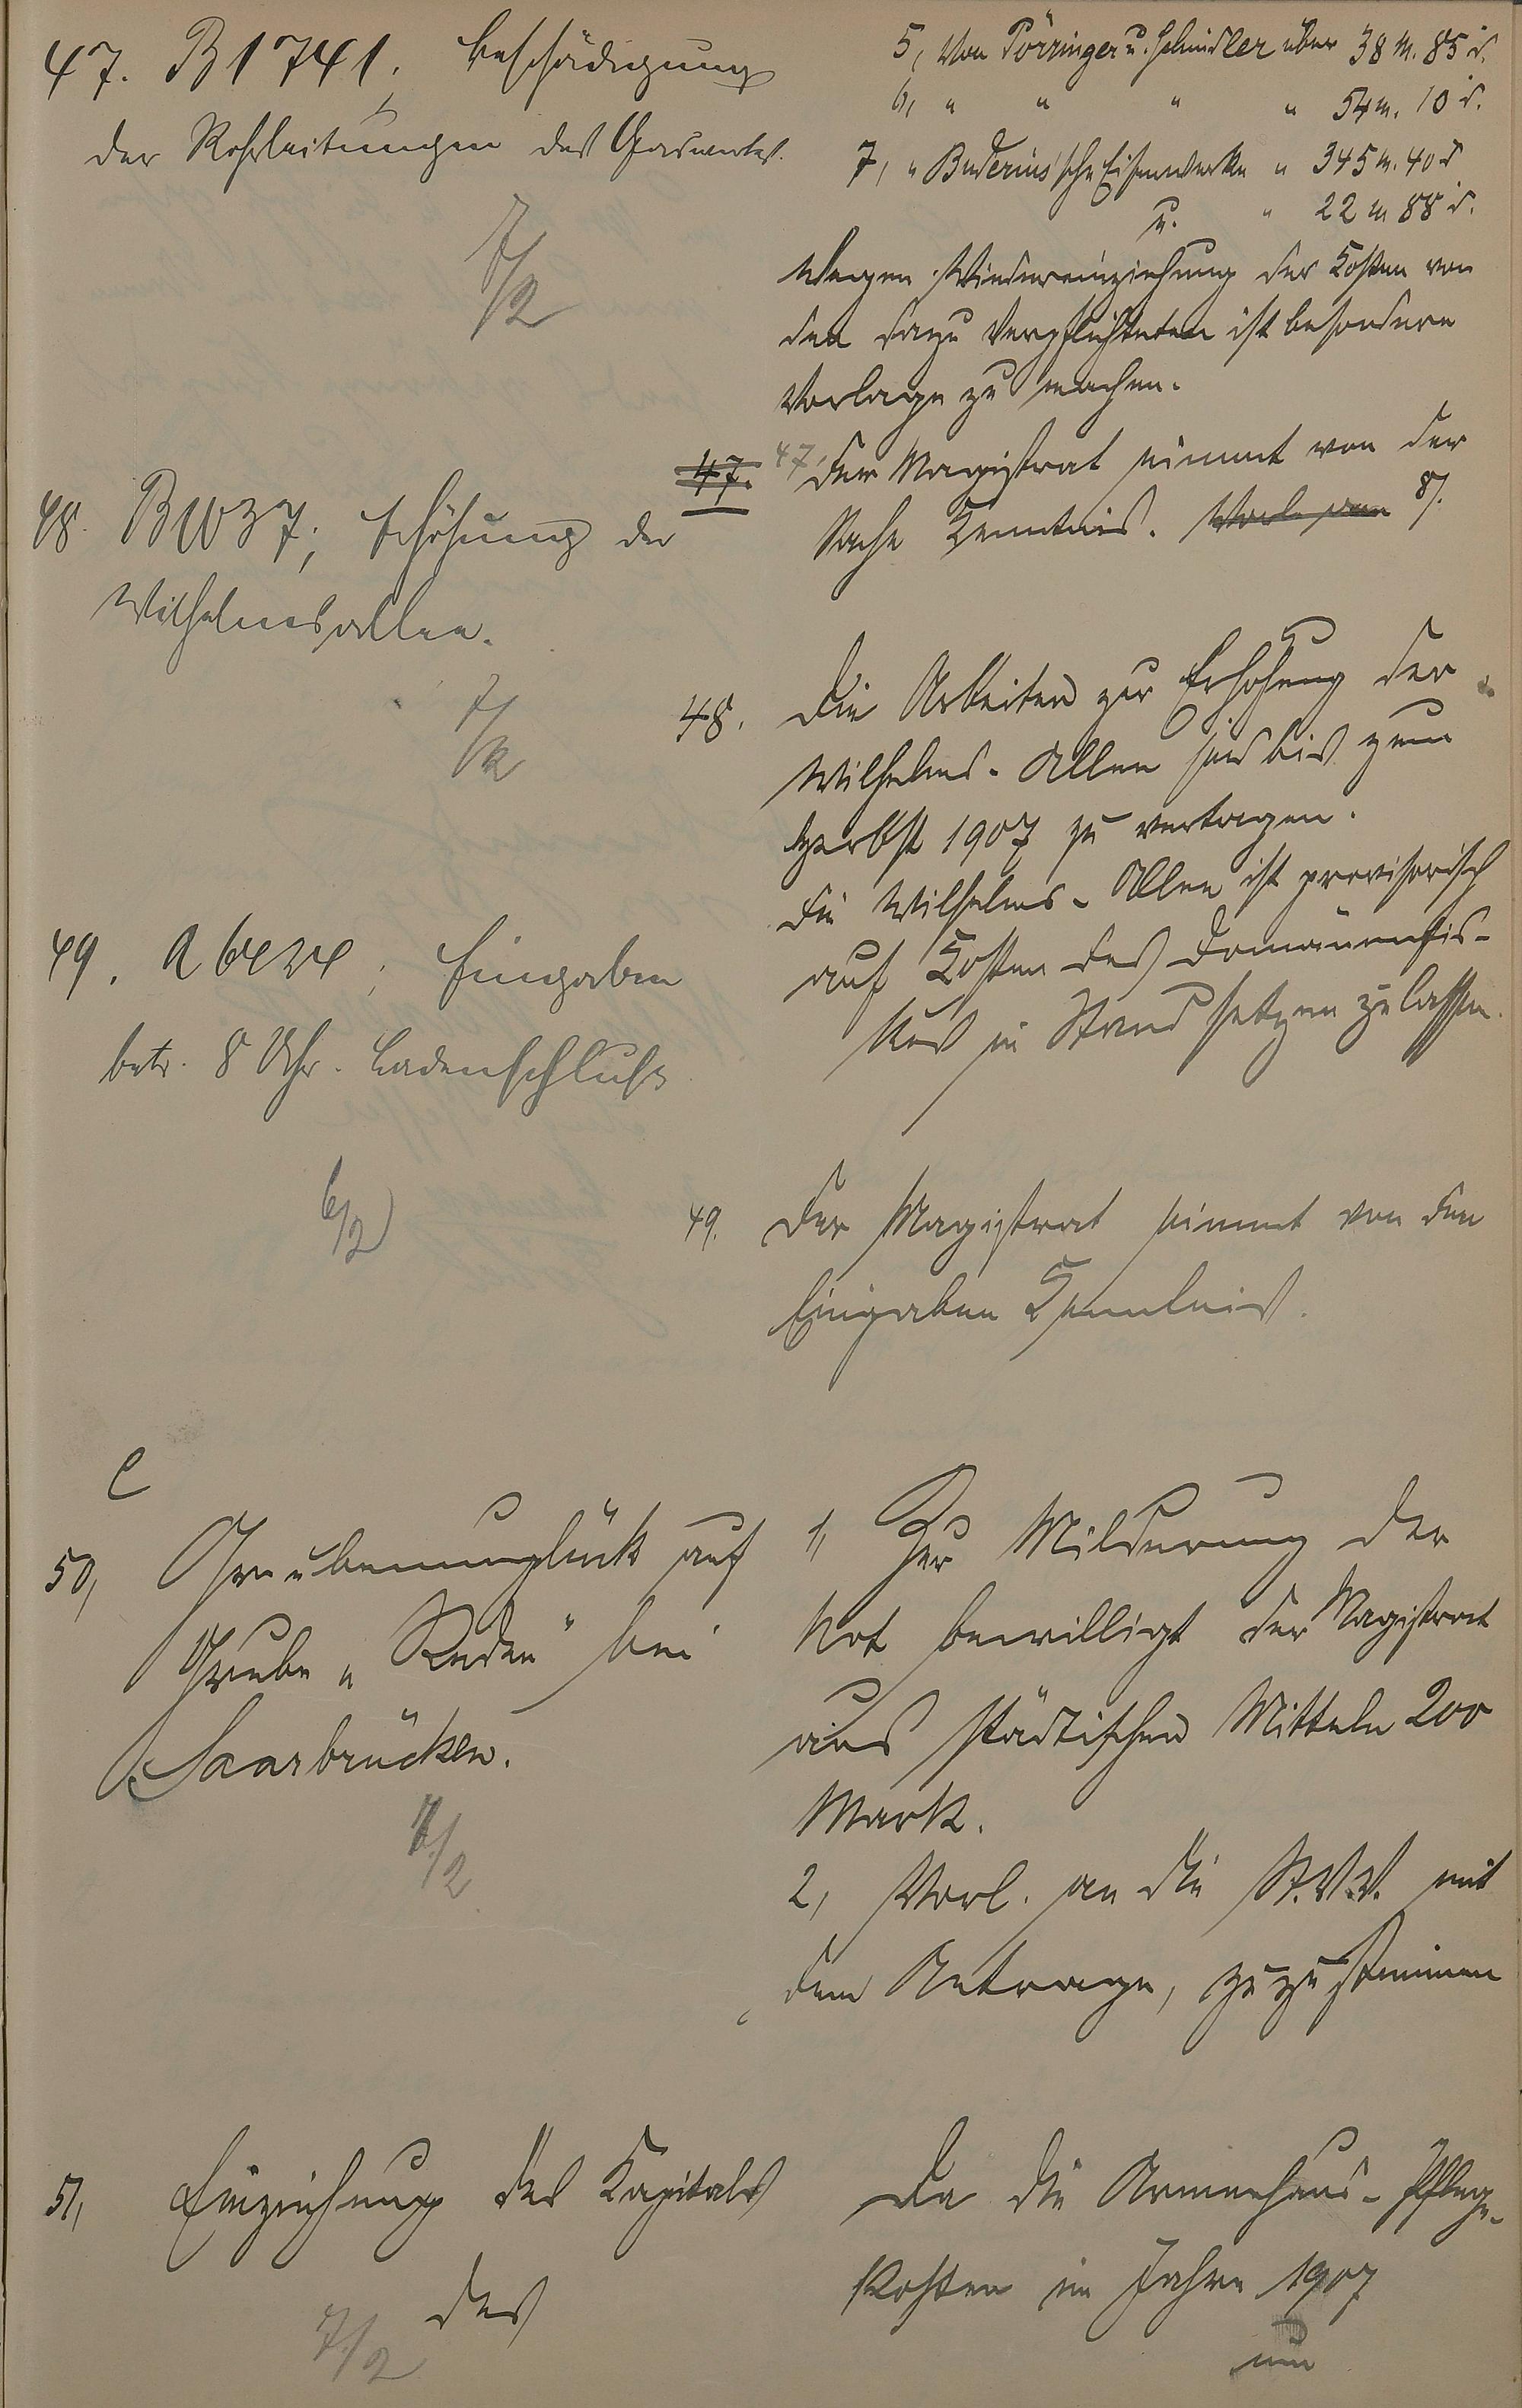 47. B 1741, Beschädigung
der Rohrleitungen des Gaswerkes.
7/2
48. B 1037; Erhöhung der
Wilhelmsallee.
7/2
49. Eingaben
betr. 8 Uhr. Ladenschluß
6/2
C
50, Grubenunglück auf
Grube „Reden“ bei
Saarbrücken.
7/2
51, Einziehung des Kapitals
des
7/2
5, Von Pörringer u. Schindler über 38 M. 85 d.
6, " " " " 54 M. 10 d.
7, " Buderus'sche Eisenwerke " 345 M. 40 d
u. " 22 M 88 d.
Wegen Wiedereinziehung der Kosten von
den dazu Verpflichteten ist besondere
Vorlage zu machen.
47. 47, Der Magistrat nimmt von der
Sache Kenntnis. 8/.
48. Die Arbeiten zur Erhöhung der
Wilhelms-Allee sind bis zum
Herbst 1907 zu vertagen.
Die Wilhelms-Allee ist provisorisch
auf Kosten des Domänenfis-
kus in Stand setzen zu lassen.
49. Der Magistrat nimmt von den
Eingaben Kenntnis.
1, Zur Milderung der
Not bewilligt der Magistrat
aus städtischen Mitteln 200
Mark.
2, Vorl. an die St.V.V. mit
dem Antrage, zuzustimmen
Da die Armenhaus-Pflege-
kosten im Jahre 1907
um